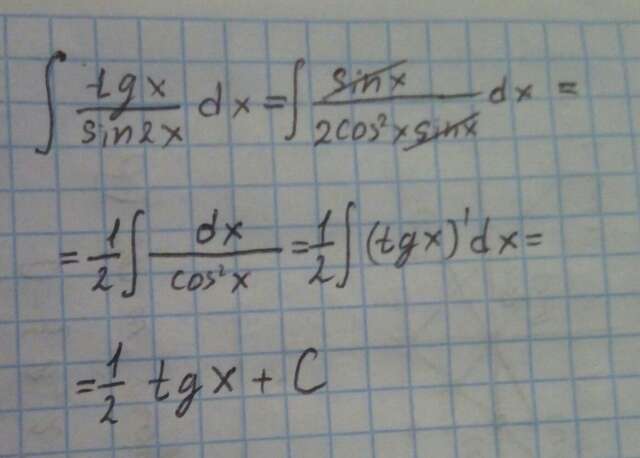 ∫ tgx/sin2x dx = ∫ sinx/2cos²xsinx dx =
= 1/2 ∫ dx/cos²x = 1/2 ∫ (tgx)' dx =
= 1/2 tgx + C